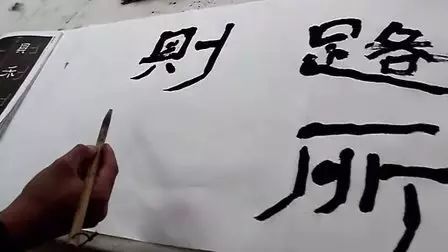 路所
則